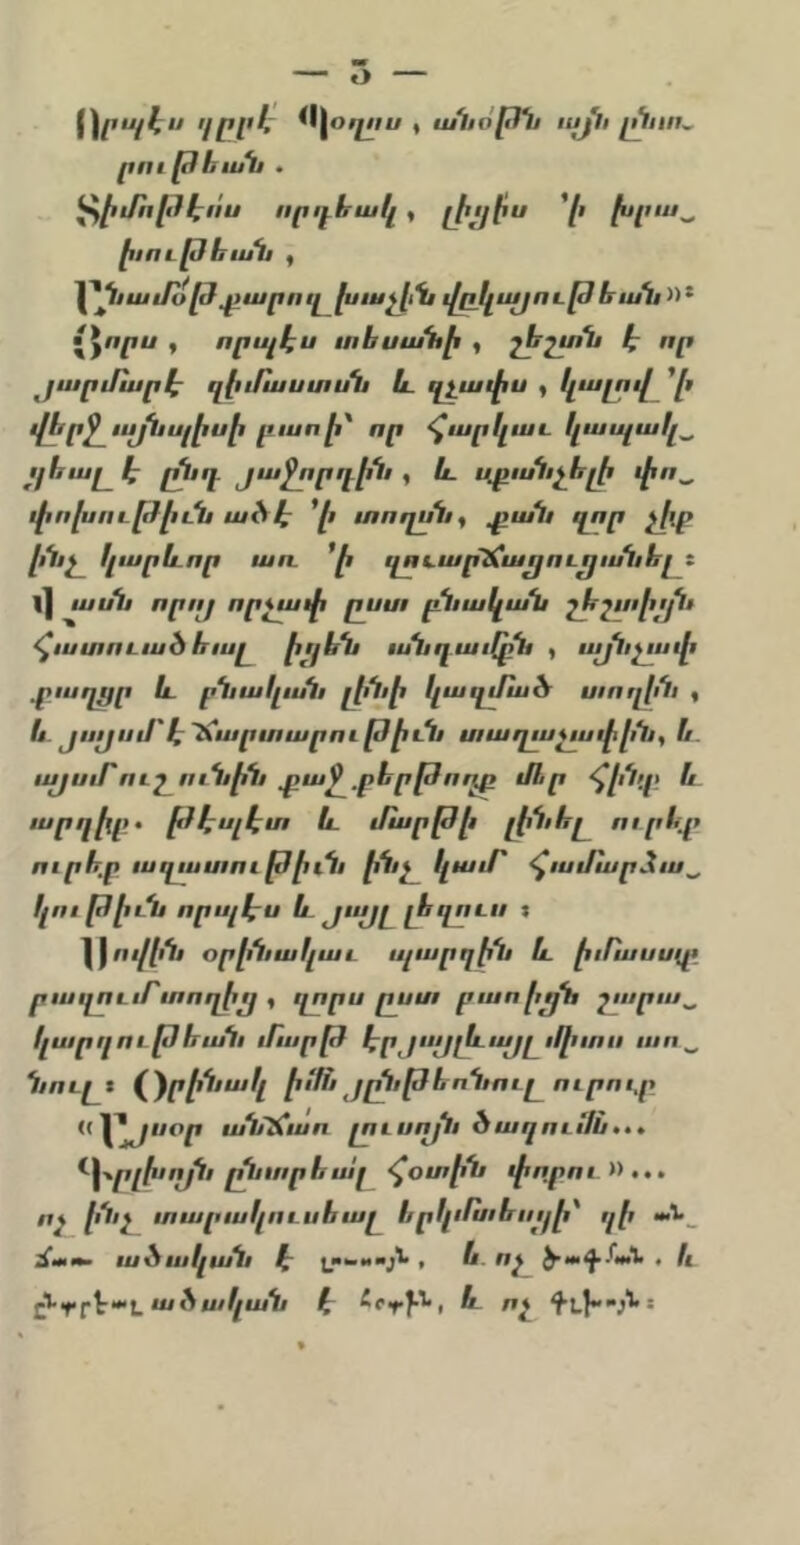 — 5 —
Որպէս գըրէ՛ Պօղոս , անօթն այն ընտ-
րութեան .
Տիմոթէոս որդեակ , լիցիս ՚ի խրա-
խութեան ,
Ընամօ՛թ քարոզ խաչին վըկայութեան»։
Զորս , որպէս տեսանի , շեշտն է որ
յարմարէ զիմաստսն և զչափս , կալով ՚ի
վերջ այնպիսի բառի՝ որ հարկաւ կապակ-
ցեալ է ընդ յաջորդին , և սքանչելի փո-
փոխութիւն ածէ ՚ի տողսն, քան զոր չիք
ինչ կարևոր առ ՚ի զուարճացուցանել ։
Վասն որոյ որչափ ըստ բնական շեշտիցն
հատուածեալ իցեն անդամքն , այնչափ
քաղցր և բնական լինի կազմած տողին ,
և յայսմ է ճարտարութիւն տաղաչափին, և
այսմ ուշ ունին քաջ քերթողք մեր հինք և
արդիք. թէպէտ և մարթի լինել ուրեք
ուրեք ազատութիւն ինչ կամ համարձա-
կութիւն որպէս և յայլ լեզուս ։
Սովին օրինակաւ պարզին և իմասսք
բազում տողից , զորս ըստ բառիցն շարա-
կարգութեան մարթ էր յայլևայլ միտս առ-
նուլ ։ Օրինակ իմն յընթեռնուլ ուրուք
«Այսօր անճառ լուսոյն ծագումն...
Գըլխոյն ընտրեալ հօտին փոքու»...
ոչ ինչ տարակուսեալ երկմտեսցի՝ զի ան-
ճառ ածական է լուսոյն , և ոչ ծագման . և
ընտրեալ ածական է հօտին, և ոչ գլխոյն ։